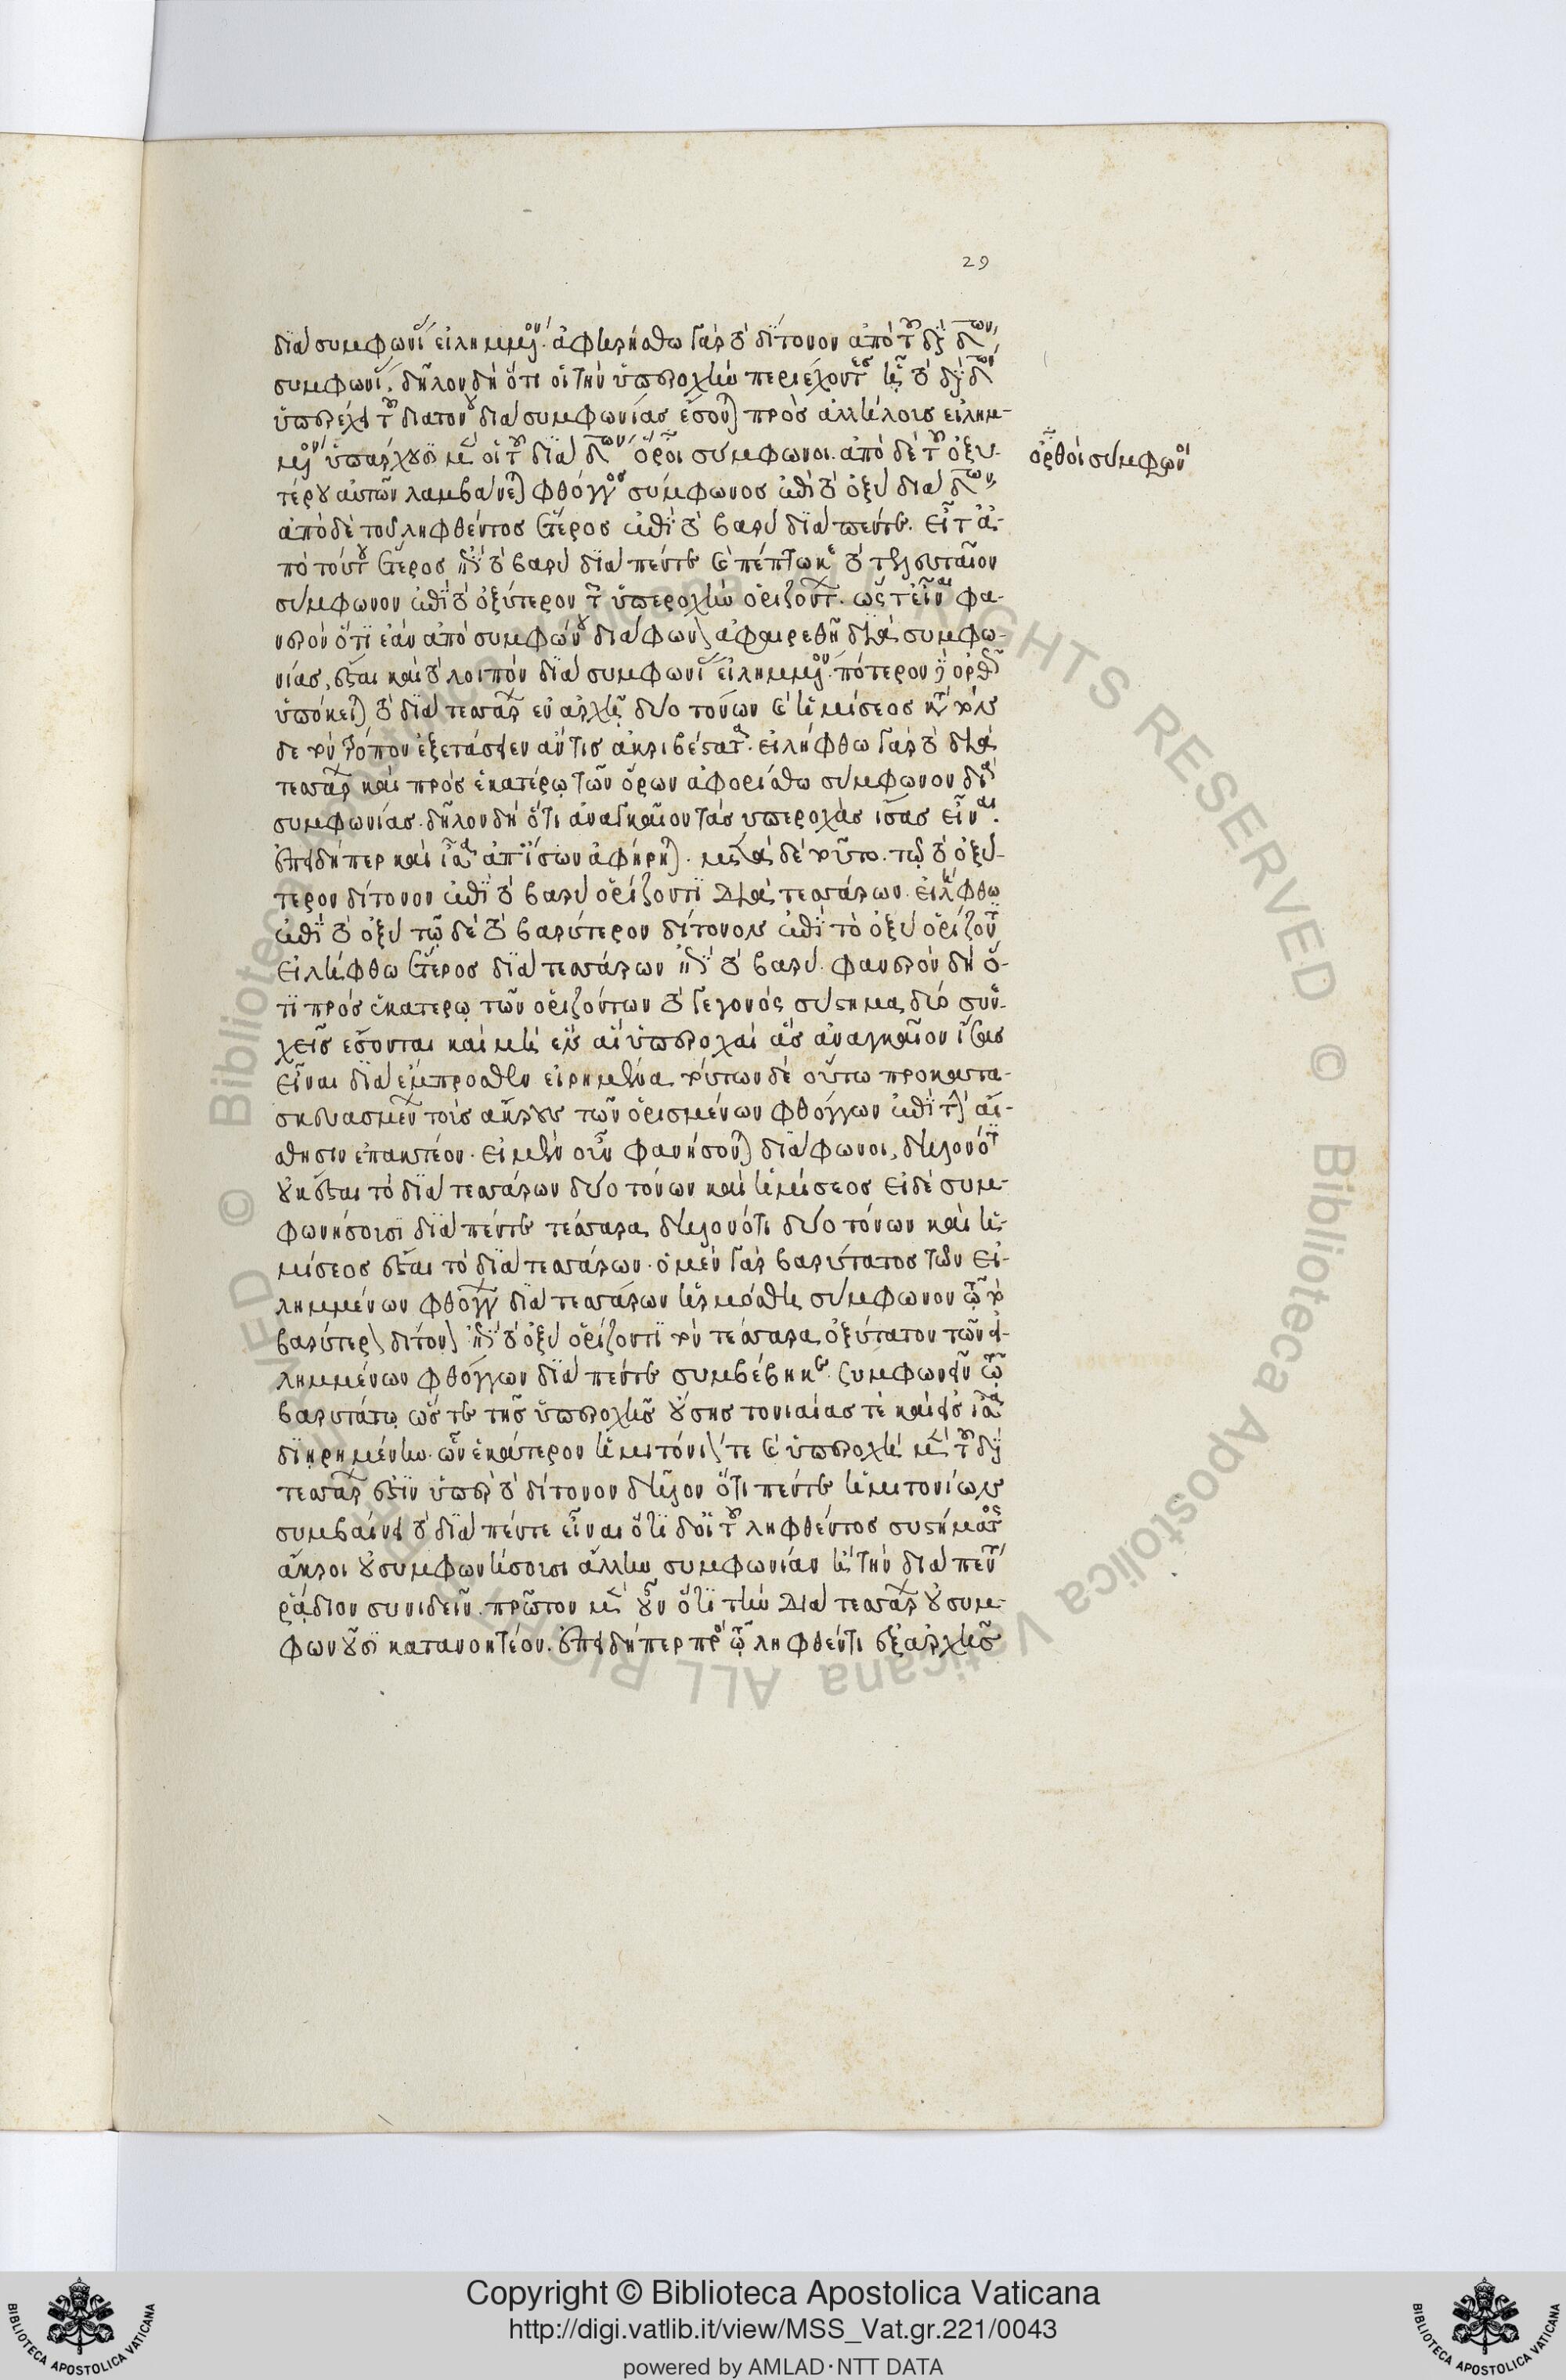 29
διὰ συμφωνί(ας) εἰλημμέ(ν)ον. ἀφηρήσθω γὰρ τὸ δίτονον ἀπὸ τοῦ διὰ δων,
συμφώνου. δῆλον δὴ ὅτι οἱ τὴν ὑπεροχὴν περιέχοντες ᾗ τὸ διὰ δων
ὑπερέχει τοῦ διατόνου διὰ συμφωνίας ἔσονται πρὸς ἀλλήλοις εἰλημ-
μένον ὑπάρχουσι μὲν οἱ τοῦ διὰ δων ὅροι σύμφωνοι. ἀπὸ δὲ τοῦ ὀξυ-
τέρου αὐτῶν λαμβάνεται φθόγγος σύμφωνος ἐπὶ τὸ ὀξὺ διὰ δων,
ἀπὸ δὲ τοῦ ληφθέντος ἕτερος ἐπὶ τὸ βαρὺ διὰ πέντε. εἶτ ἀ-
πὸ τούτου ἕτερος ἐπὶ τὸ βαρὺ διὰ πέντε καὶ πέπτωκε τὸ τελευταῖον
σύμφωνον ἐπὶ τὸ ὀξύτερον τῶν ὑπεροχὴν ὁριζόντων. ὥστ εἶναι φα-
νερὸν ὅτι ἐὰν ἀπὸ συμφώνου διάφωνον ἀφαιρεθῆ διὰ συμφω-
νίας, ἔσται καὶ τὸ λοιπὸν διὰ συμφωνίας εἰλημμένον. πότερον δ ὀρθῶς
ὑπόκειται τὸ διὰ τεσσάρων ἐν ἀρχῇ δύο τόνων καὶ ἡμίσεος κατὰ τόν
δε τὸν τρόπον ἐξετάσειεν ἄν τις ἀκριβέστατα. εἰλήφθω γὰρ τὸ διὰ
τεσσάρων καὶ πρὸς ἑκατέρῳ τῶν ὅρων ἀφορίσθω σύμφωνον διὰ
συμφωνίας. δῆλον δὴ ὅτι ἀναγκαῖον τὰς ὑπεροχὰς ἴσας εἶναι.
ἐπειδήπερ καὶ ἴσα ἀπ ἴσων ἀφῄρηται. μετὰ δὲ τοῦτο. τῷ τὸ ὀξύ-
τερον δίτονον ἐπὶ τὸ βαρὺ ὁρίζοντι διὰ τεσσάρων. εἰλήφθω
ἐπὶ τὸ ὀξὺ τῷ δὲ τὸ βαρύτερον δίτονον ἐπὶ τὸ ὀξὺ ὁρίζοντι
εἰλήφθω ἕτερος διὰ τεσσάρων ἐπὶ τὸ βαρύ. φανερὸν δὴ ὅ-
τι πρὸς ἑκατέρῳ τῶν ὁριζόντων τὸ γεγονὸς σύστημα δύο συν-
χεῖς ἔσονται καὶ μὴ ἓν αἱ ὑπεροχαὶ ἃς ἀναγκαῖον ἴσας
εἶναι διὰ ἔμπροσθεν εἰρημένα τούτων δὲ οὕτω προκατα-
σκευασμένων τοὺς ἄκρους τῶν ὁρισμένων φθόγγων ἐπὶ τὴν αἴ-
σθησιν ἐπακτέον. εἰ μὲν οὖν φανήσονται διάφωνοι, δῆλον ὅτι
οὐκ ἔσται τὸ διὰ τεσσάρων δύο τόνων καὶ ἡμίσεος εἰ δὲ συμ-
φωνήσοισι διὰ πέντε τέσσαρα, δῆλον ὅτι δύο τόνων καὶ ἡ-
μίσεος ἔσται τὸ διὰ τεσσάρων. ὁ μὲν γὰρ βαρύτατος τῶν εἰ-
λημμένων φθόγγων διὰ τεσσάρων ἡρμόσθη σύμφωνον τῷ τὸ
βαρύτερον δίτονον ἐπὶ τὸ ὀξὺ ὁρίζοντι τὸν τέσσαρα ὀξύτατον τῶν εἰ-
λημμένων φθόγγων διὰ πέντε συμβέβηκε. συμφωνεῖν τῷ
βαρυτάτῳ ὥστε τῆς ὑπεροχῆς οὔσης τονιαίας τὲ καὶ εἰς ἴσα
διῃρημένῳ. ὧν ἑκάτερον ἡμιτόνιόν τε καὶ ὑπεροχὴ μὲν τοῦ διὰ
τεσσάρων ἐστὶν ὑπὲρ τὸ δίτονον δῆλον ὅτι πέντε ἡμιτονίων
συμβαίνει τὸ διὰ πέντε εἶναι ὅτι δοΐ τοῦ ληφθέντος συστήματος
ἄκροι οὐ συμφωνήσοισι ἄλλην συμφωνίαν ἢ τὴν διὰ πέντε
ῥᾴδιον συνιδεῖν. πρῶτον μὲν οὖν ὅτι τὴν διὰ τεσσάρων οὐ συμ-
φωνοῦσι κατανοητέον. ἐπειδήπερ πρὸς τῷ ληφθέντι ἐξ ἀρχῆς
ὅρθοι σύμφωνοι
Copyright © Biblioteca Apostolica Vaticana
http://digi.vatlib.it/view/MSS_Vat.gr.221/0043
powered by AMLAD·NTT DATA